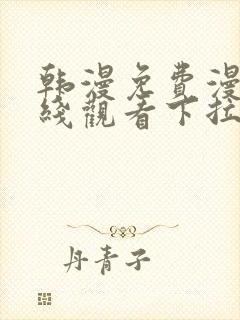 韩漫免費漫
綫觀看下拉
丹青子